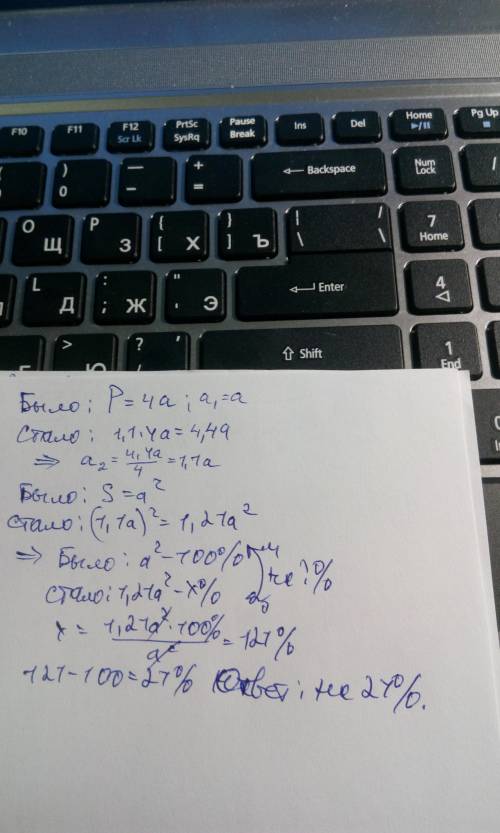 F10 F11 F12 Scr Lk PrtSc SysRq Pause Break Ins Del Home Pg Up
) 0 — - + = Backspace Num Lock /
О Щ P З { [ Х } ] Ъ | \ / \ 7 Home
L Д : ; Ж " ' Э Enter 4
> Ю ? Shift 1 End
Было: P=4a; a₁=a
Стало: 1,1·4a=4,4a
⇒ a₂=4,4a/4=1,1a
Было: S=a²
Стало: (1,1a)²=1,21a²
⇒ Было: a²-100%
на ?%
Стало: 1,21a²-x%
x = 1,21a²·100%/a² = 121%
121-100=21% Ответ: на 21%.